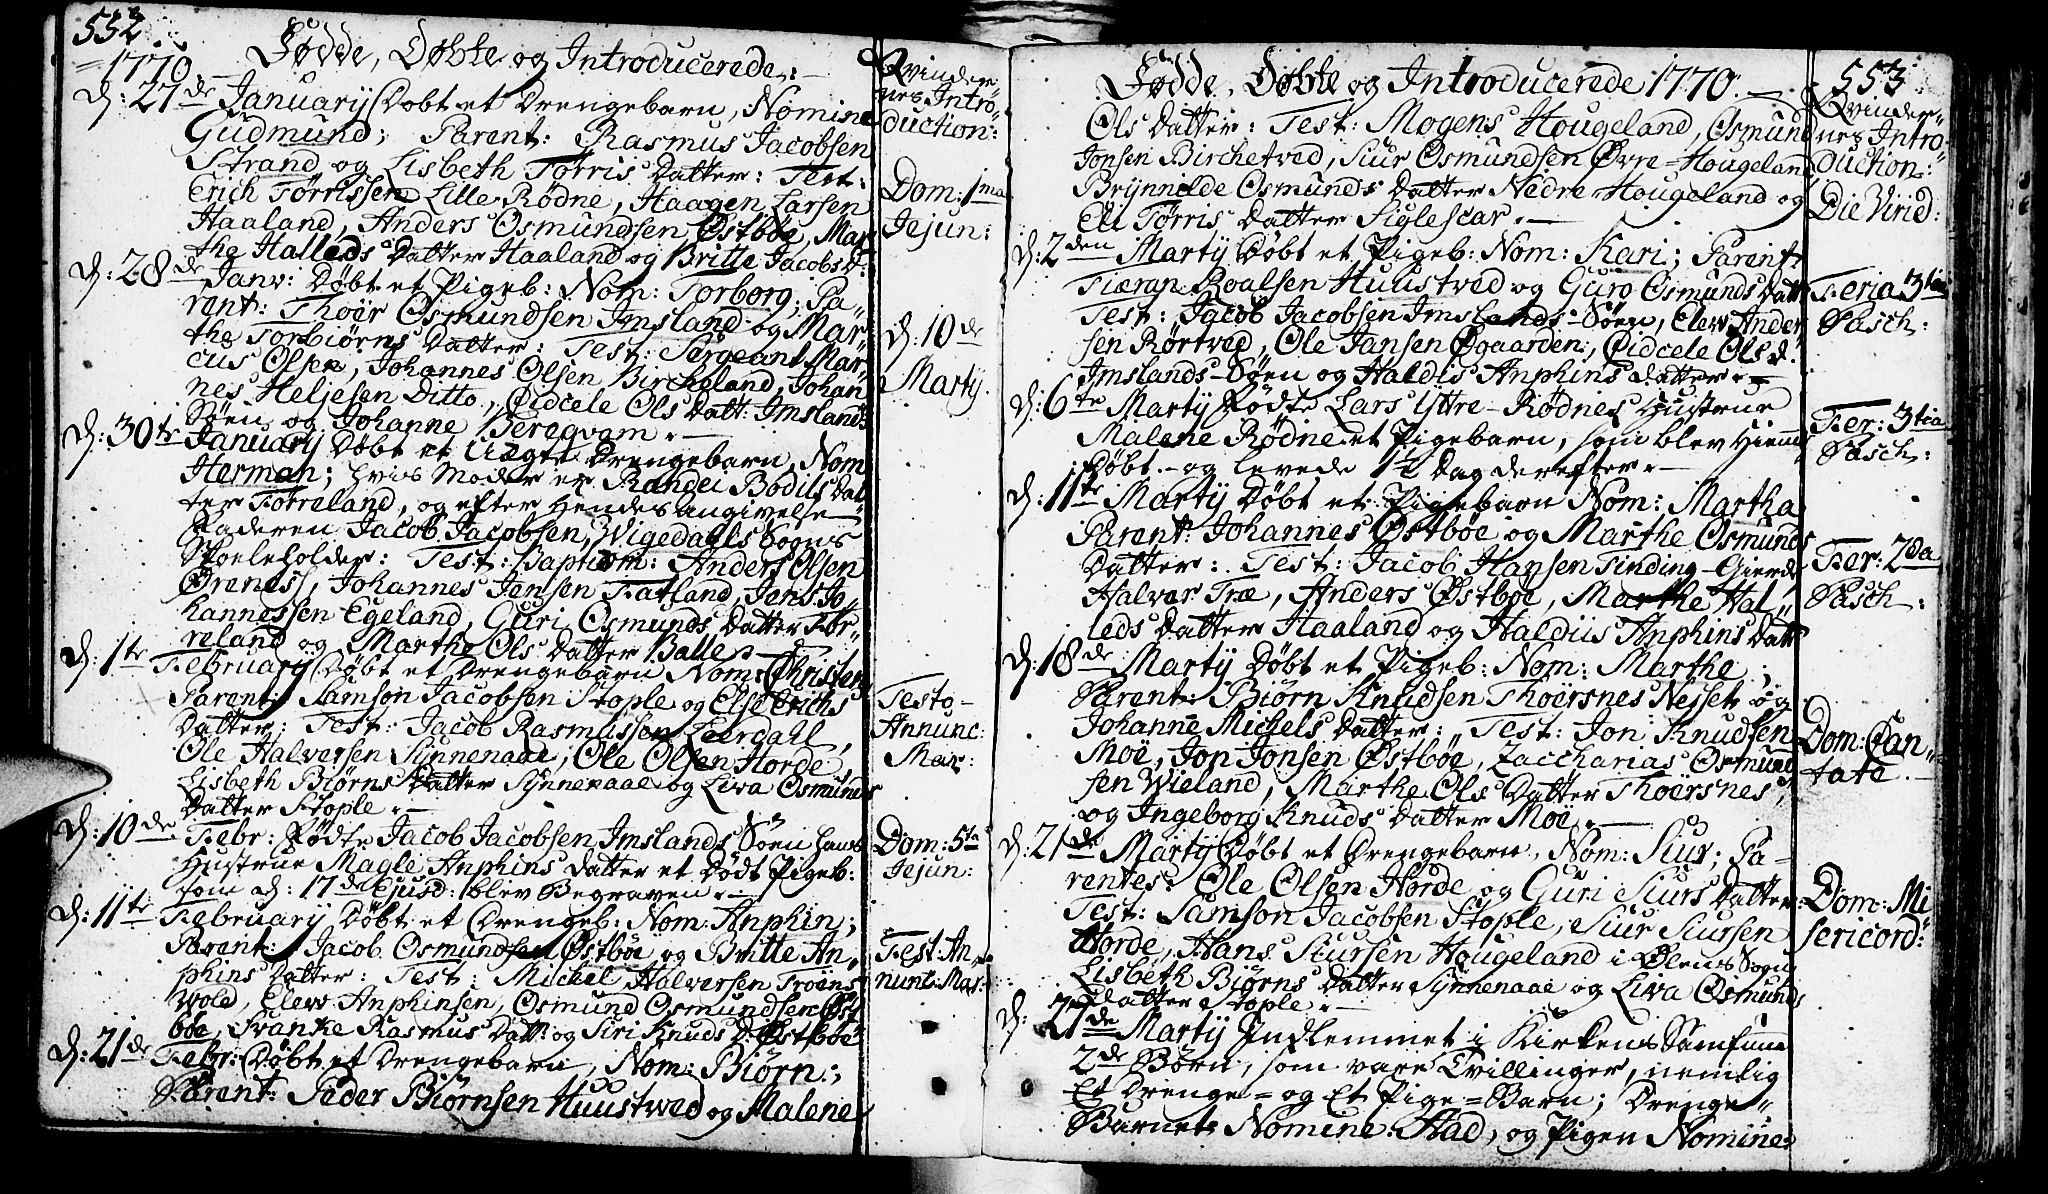 552.
1770
Fødde, Døbte og Introducerede:
Qvinder-
nes Intro-
duction:
d: 27de Januarij Døbt et Drengebarn, Nomine
Gudmund; Parent: Rasmus Jacobsen
Strand og Lisbeth Tørris Datter: Test:
Erich Tørrissen Lille Rødne, Haagen Larsen
Haaland, Anders Osmundsen Østbøe, Mar-
the Halleds Datter Haaland og Britte Jacobs D:
Dom: 1ma
Jejun:
d: 28de Janv: Døbt et Pigeb: Nom: Torborg; Pa-
rent: Thoer Osmundsen Imsland og Mar-
the Torbiørns Datter: Test: Sergeant Mar-
cus Olsen, Johannes Olsen Bircheland, Johan
nes Heljesen Ditto, Cidcele Ols Datt: Imslands
Søen og Johanne Bereqvam.
d: 10de
Martij.
d: 30te Januarij Døbt et Uægte Drengebarn, Nom
Herman; hvis Moder er Randei Bodils Dat
ter Tørreland, og efter Hendes angivelse
Faderen Jacob Jacobsen, Wigedahls Sogns
Skoleholder: Test: Baptism: Anders Olsen
Ørenes, Johannes Jensen Fatland, Jens Jo
hannessen Egeland, Guri Osmunds Datter Tør-
reland og Marthe Ols Datter Balle.
d: 1te Februarij Døbt et Drengebarn Nom: Christen
Parent: Samson Jacobsen Stople og Else Erichs
Datter: Test: Jacob Rasmussen Leerdahl,
Ole Halversen Synnenaae, Ole Olsen Horde
Lisbeth Biørns Datter Synnenaae og Liva Osmunds
Datter Stople.
Festo
Annunc:
Mar:
d: 10de Febr: Fødte Jacob Jacobsen Imslands Søen hans
Hustrue Magle Anphins Datter et Dødt Pigeb:
som d: 17de Ejusd: blev Begraven.
Dom: 5ta
Jejun:
d: 11te Februarij Døbt et Drengeb: Nom: Anphin;
Parent: Jacob Osmundsen Østbøe og Britte An-
phins Datter: Test: Michel Halversen Troens
wold, Elev Anphinsen, Osmund Osmundsen Øst
bøe, Svanke Rasmus Datt: og Siri Knuds D: Østbøe
Fest: An
nunt: Mar:
d: 21de Febr: Døbt et Drengebarn, Nom: Biørn;
Parent: Peder Biørnsen Huustved og Malene
Fødde, Døbte og Introducerede 1770.
553
Qvinder-
nes Intro-
duction:
Ols Datter: Test: Mogens Hougeland, Osmund
Jonsen Birchetved, Siur Osmundsen Øvre-Hougeland
Brynnilde Osmunds Datter Nedre Hougeland og
Eli Tørris Datter Siglescar.
Die Virid:
d: 2den Martij Døbt et Pigeb: Nom: Kari; Parent:
Tieran Roalsen Huustved og Guro Osmunds Datt
Test: Jacob Jacobsen Imslands-Søen, Elev Ander
sen Rørtved, Ole Jansen Øgaarden, Cidcele Ols D.
Imslands-Søen og Haldis Anphins Datter.
Feria 3tia
Pasch:
d: 6te Martij Fødte Lars Yttre-Rødnes Hustrue
Malene Rødne et Pigebarn, som blev Hiemme
Døbt og levede 1½ Dag derefter.
Fer: 3tia
Pasch:
d: 11te Martij Døbt et Pigebarn Nom: Martha
Parent: Johannes Østbøe og Marthe Osmunds
Datter: Test: Jacob Hansen Tinding-Gierde
Halver Træ, Anders Østbøe, Marthe Hal-
leds Datter Haaland og Haldiis Anphins Datt
Fer: 2da
Pasch:
d: 18de Martij Døbt et Pigeb: Nom: Marthe;
Parent: Biørn Knudsen Thoersnes Nesset og
Johanne Michels Datter: Test: Jon Knudsen
Moe, Jon Jonsen Østbøe, Zaccharias Osmund
sen Wieland, Marthe Ols Datter Thoersnes,
og Ingeborg Knuds Datter Moe.
Dom: Can-
tate.
d: 21de Martij Døbt et Drengebarn, Nom: Siur; Pa-
rentes: Ole Olsen Horde og Guri Siurs Datter:
Test: Samson Jacobsen Stople, Siur Siursen
Horde, Hans Siursen Hougeland i Ølens Sogn,
Lisbeth Biørns Datter Synnenaae og Liva Osmunds
Datter Stople.
Dom: Mi
sericord:
d: 27de Martij Indlemmet i Kirkens Samfund
2de Børn, som vare Tvillinger, nemlig
Et Drenge= og Et Pige=Barn; Drenge-
Barnet Nomine Aad, og Pigen Nomine: